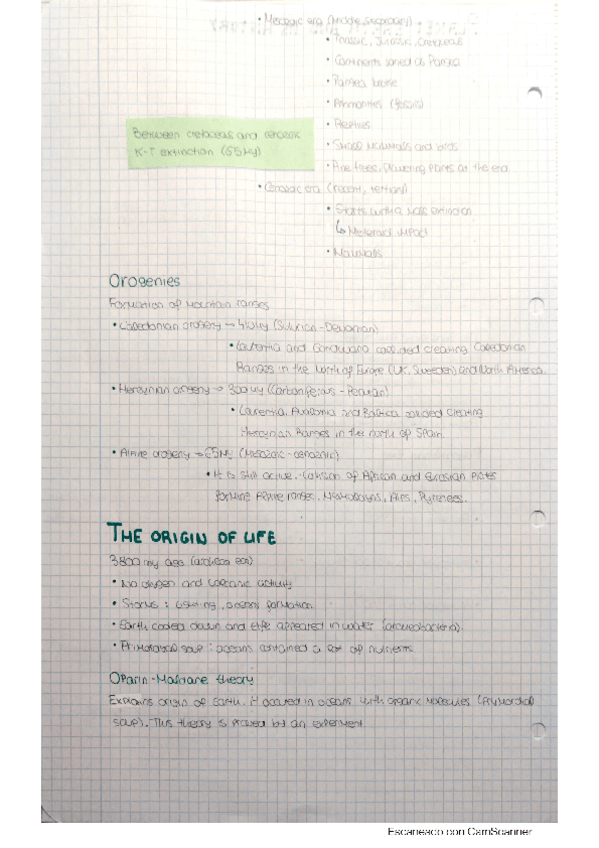 • Mesozoic era (
• Triassic, Jurassic, Cretaceous
• Continents joined as Pangea
• Pangea broke
• Ammonites (fossils)
• Reptiles
Between cretaceous and cenozoic
K-T extinction (65My)
• Small mammals and birds
• Pine trees, flowering plants at the end
• Cenozoic era (recent, tertiary)
• Starts with a mass extinction
↳ Meteorics impact
• Mammals
Orogenies
Formation of mountain ranges
• Caledonian orogeny → 410My (Silurian - Devonian)
• Laurentia and Gondwana collided creating Caledonian
Ranges in the north of Europe (UK, Sweden) and North America.
• Hercynian orogeny → 300My (Carboniferous - Permian)
• Laurentia, Avalonia and Baltica collided creating
Hercynian Ranges in the north of Spain.
• Alpine orogeny → 65My (Mesozoic - cenozoic)
• It is still active. Collision of African and Eurasian plates
forming Alpine ranges, Himalayas, Alps, Pyrinees.
THE ORIGIN OF LIFE
3800 my ago (archean eon)
• No oxygen and volcanic activity
• Storms: lightning, oceans formation.
• Earth cooled down and life appeared in water (archeobacteria)
• Primordial soup: oceans contained a lot of nutrients
Oparin - Haldane theory
Explains origin of Earth. It occured in oceans with organic molecules (Primordial
soup). This theory is proved by an experiment
Escaneado con CamScanner